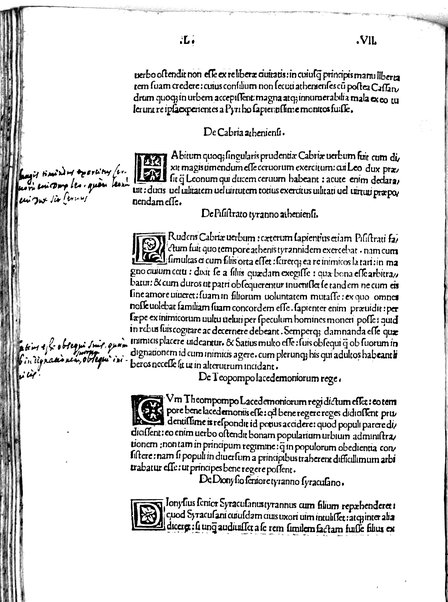 .L. .VII.
uerbo ostendit non esse ex re liberæ ciuitatis: in cuiusq; principis manu liberta
tem suam credere: cuius consilium non secuti athenienses cū postea Cassan
drum quoq; in urbem accepissent: magna atq; innumerabilia mala ex eo tu
lerunt re ipsa experientes a Pyrrho sapientissime monitos fuisse.
De Cabria atheniensi.
HAbitum quoq; singularis prudentiæ Cabriæ uerbum fuit cum di
xit magis timendum esse ceruorum exercitum: cui Leo dux præ
sit q̃ Leonum qui ducem ceruum habeant: acute enim declara
uit: duos uel uilitatem uel uirtutem totius exercitus uilitati uel uirtuti præpo
nendam esse.
De Pisistrato tyranno atheniensi.
PRudens Cabriæ uerbum: cæterum sapientius etiam Pisistrati fa
ctum fuit quo tempore athenis tyrannidem exercebat. nam cum
simultas ei cum filiis orta esset: ferretq; ea re inimicos lætari: in ma
gno ciuium cœtu: dixit se a filiis quædam exegisse: qua bona esse arbitra
batur: & cum duros ut patri obsequerentur inuenisset se tandem ne cum eis
sine amore uiueret: suam in filiorum uoluntatem mutasse: ex quo omnes
nosse uolebat familiam suam concordem esse. sapienter enim præuidit: per
sæpe ex inimicorum uultu ueluti per speculum homines moneri posse: quid
in rebus suis cogitare ac decernere debeant. Semperq; damnanda esse quæ
inimicis placere uideantur. & Satius multo esse: suis obsequi q̃ ob suorum in
dignationem id cum inimicis agere. cum plerunq; his qui adultos habeant li
beros necesse sit ut in alterutrum incidant.
De Teopompo lacedemoniorum rege.
CVm Theompompo Lacedemoniorum regi dictum esset: eo tem
pore bene lacedemoniis esse: qđ bene regere reges didicissent pru
dentissime is respondit id potius accidere: quod populi parere di
dicissent: eo enim uerbo ostendit bonam popularium urbium administra
tionem: non tam in principum regimine: q̃ in populorum obedientia con
sistere: nam si populi in diuersum a principibus traherent difficillimum arbi
trabatur esse: ut principes bene regere possent.
De Dionysio seniore tyranno syracusano.
DIonysius senior Syracusanus tyrannus cum filium reprehenderet:
quod Syracusani cuiusdam ciuis uxori uim intulisset: atq; inter alia
diceret: si unq̃ audiuisset a se rem similem factam fuisse filius ex